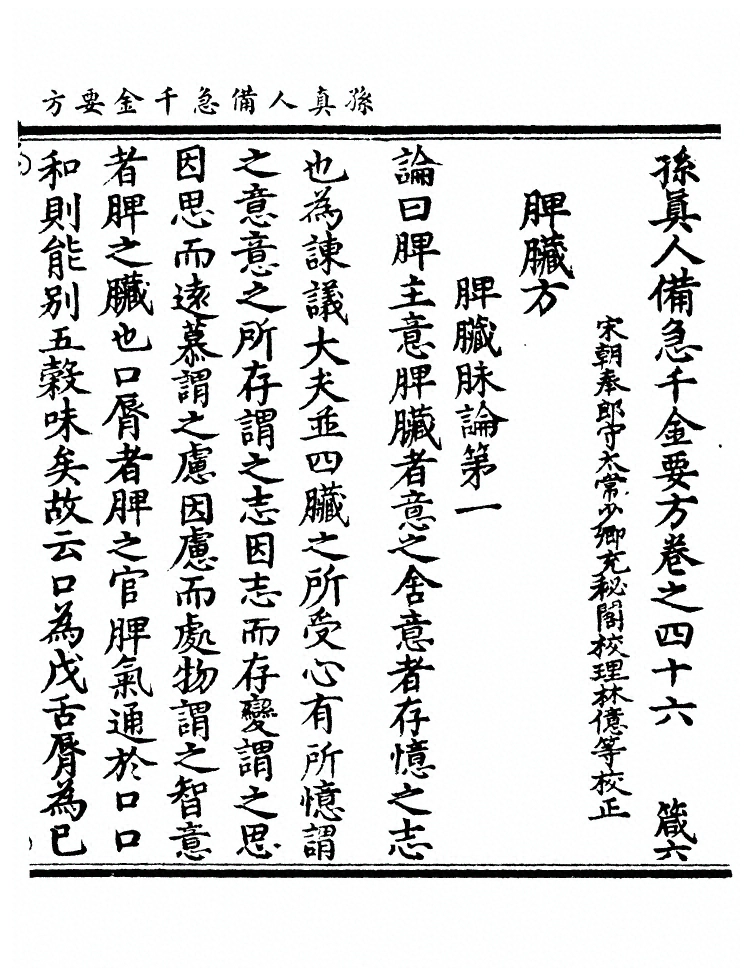 孫真人備急千金要方
孫真人備急千金要方卷之四十六 箴六
宋朝奉郎守太常少卿充秘閣校理林億等校正
脾臟方
脾臟脉論第一
論曰脾主意脾臟者意之舍意者存憶之志
也為諫議大夫並四臟之所受心有所憶謂
之意意之所存謂之志因志而存變謂之思
因思而遠慕謂之慮因慮而處物謂之智意
者脾之臟也口脣者脾之官脾氣通於口口
和則能別五穀味矣故云口為戊舌脣為已